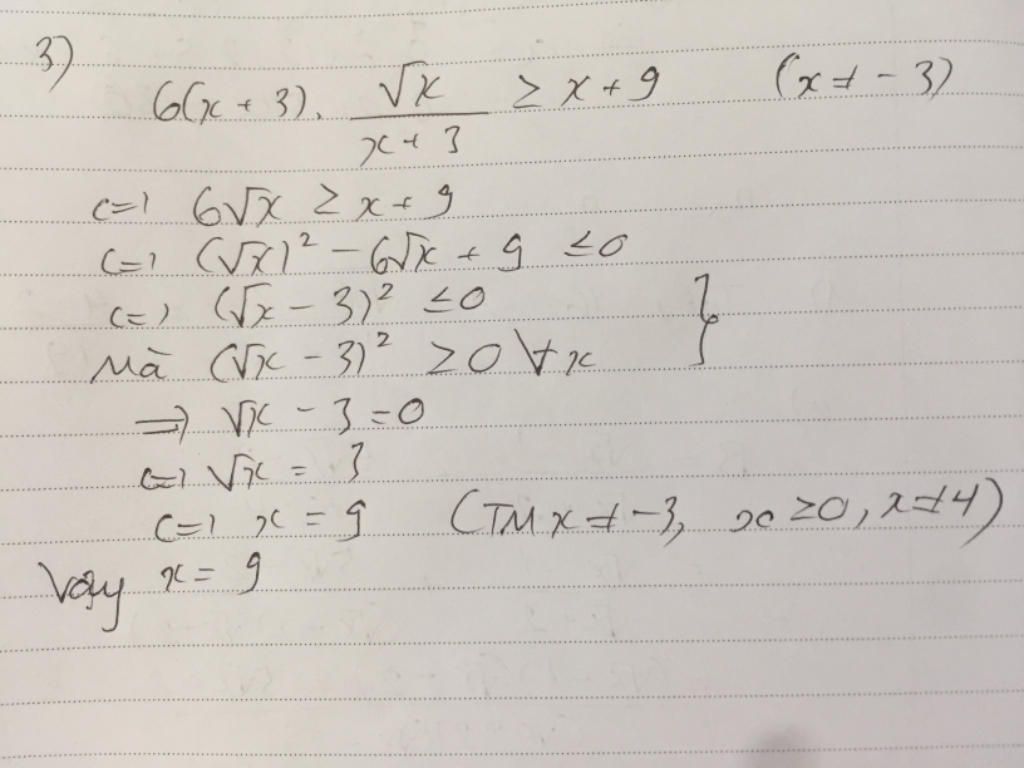 3)
6(x + 3). √x / (x + 3) ≥ x + 9 (x ≠ - 3)
<=> 6√x ≥ x + 9
<=> (√x)² - 6√x + 9 ≤ 0
<=> (√x - 3)² ≤ 0 }
Mà (√x - 3)² ≥ 0 ∀x
=> √x - 3 = 0
<=> √x = 3
<=> x = 9 (TM x ≠ -3, x ≥ 0, x ≠ 4)
Vậy x = 9